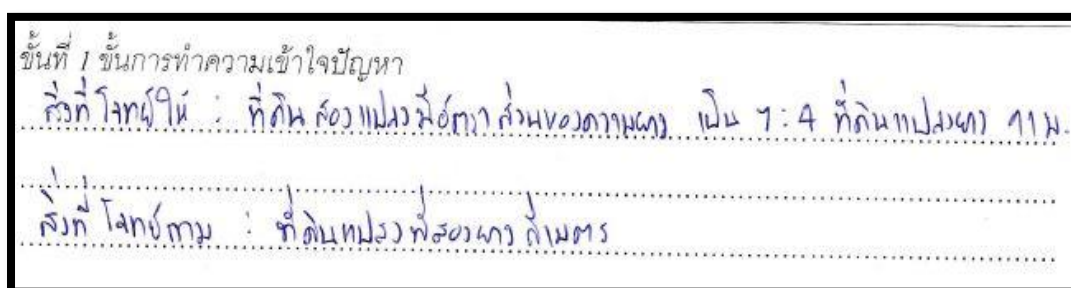 ขั้นที่ 1 ขั้นการทำความเข้าใจปัญหา
สิ่งที่โจทย์ให้ : ที่ดินสองแปลงมีอัตราส่วนของความยาว เป็น 7:4 ที่ดินแปลงยาว 77 ม.
สิ่งที่โจทย์ถาม : ที่ดินแปลงที่สองยาวกี่เมตร